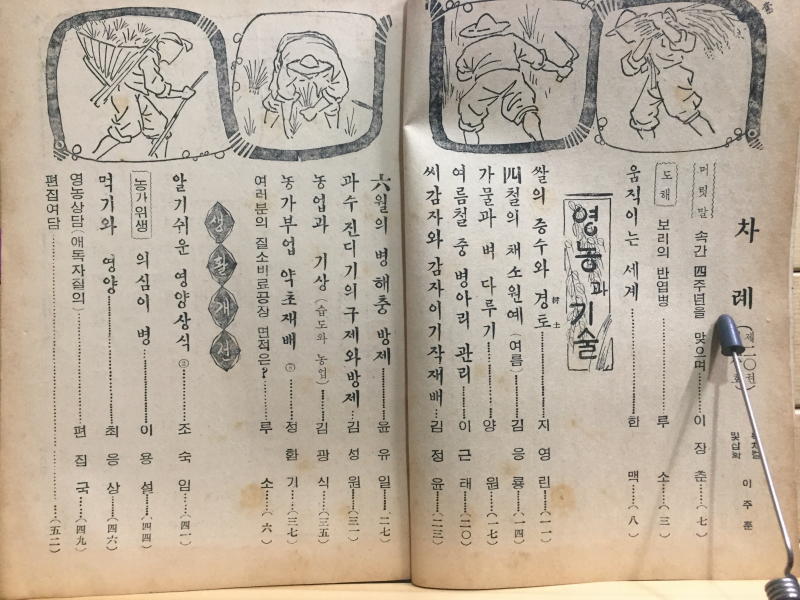 차례 (제二○권
및삽화 이주훈
머릿말 속간 四주년을 맞으며……이장춘…(七)
도해 보리의 반엽병……루소…(三)
움직이는 세계……한맥…(八)
영농과 기술
쌀의 증수와 경토(耕土)……지영린…(一一)
四철의 채소원예(여름)……김응룡…(一四)
가물과 벼 다루기……양원…(一七)
여름철 중병아리 관리……이근태…(二○)
씨감자와 감자이기작재배…김정윤…(二三)
六월의 병해충 방제……윤유일…(二七)
과수 진디기의 구제와방제…김성원…(三一)
농업과 기상(습도와 농업)…김광식…(三五)
농가부업 약초재배……정환기…(三七)
여러분의 질소비료공장 면적은?……루소…(六)
생활개선
알기쉬운 영양상식……조숙임…(四一)
농가위생 의심이 병……이용설…(四四)
먹기와 영양……최응상…(四六)
영농상담(애독자질의)……편집국…(四九)
편집여담……(五二)